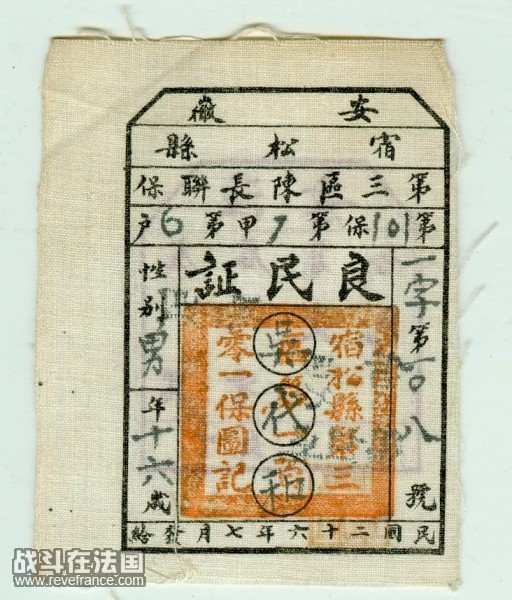 安徽
宿松縣
第三區陳長聯保
第101保第7甲第6戶
良民証
一字第一〇八號
吳代和
宿松縣第三
零一保圖記
性別男
年十六歲
民國二十六年七月發給
战斗在法国
www.revefrance.com